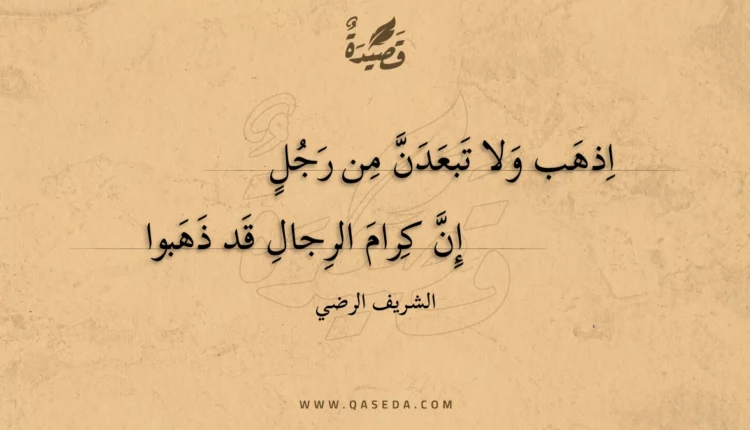 قَصِيدَةٌ
اِذهَب وَلا تَبعَدَنَّ مِن رَجُلٍ
إِنَّ كِرامَ الرِجالِ قَد ذَهَبوا
الشريف الرضي
WWW.QASEDA.COM